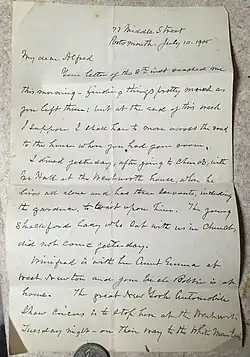 77 Middle Street
Portsmouth. July 10. 1905
My dear Alfred
Your letter of the 8th inst reached me
this morning - finding things pretty much as
you left them; but at the end of this week
I suppose I shall have to move across the road
to the house where you had your room.
I dined yesterday, after going to Church, with
Mr Hall at the Wentworth house, where he
lives all alone and has three servants, including
the gardener, to wait upon him. The young
lady who sat with us in Church,
did not come yesterday.
Winifred is with her Aunt Emma at
West Newton and your Uncle Bobbie is at
home. The great New York Automobile
Show Circus is to stop here at the Wentworth
Tuesday night - on their way to the White Mountains